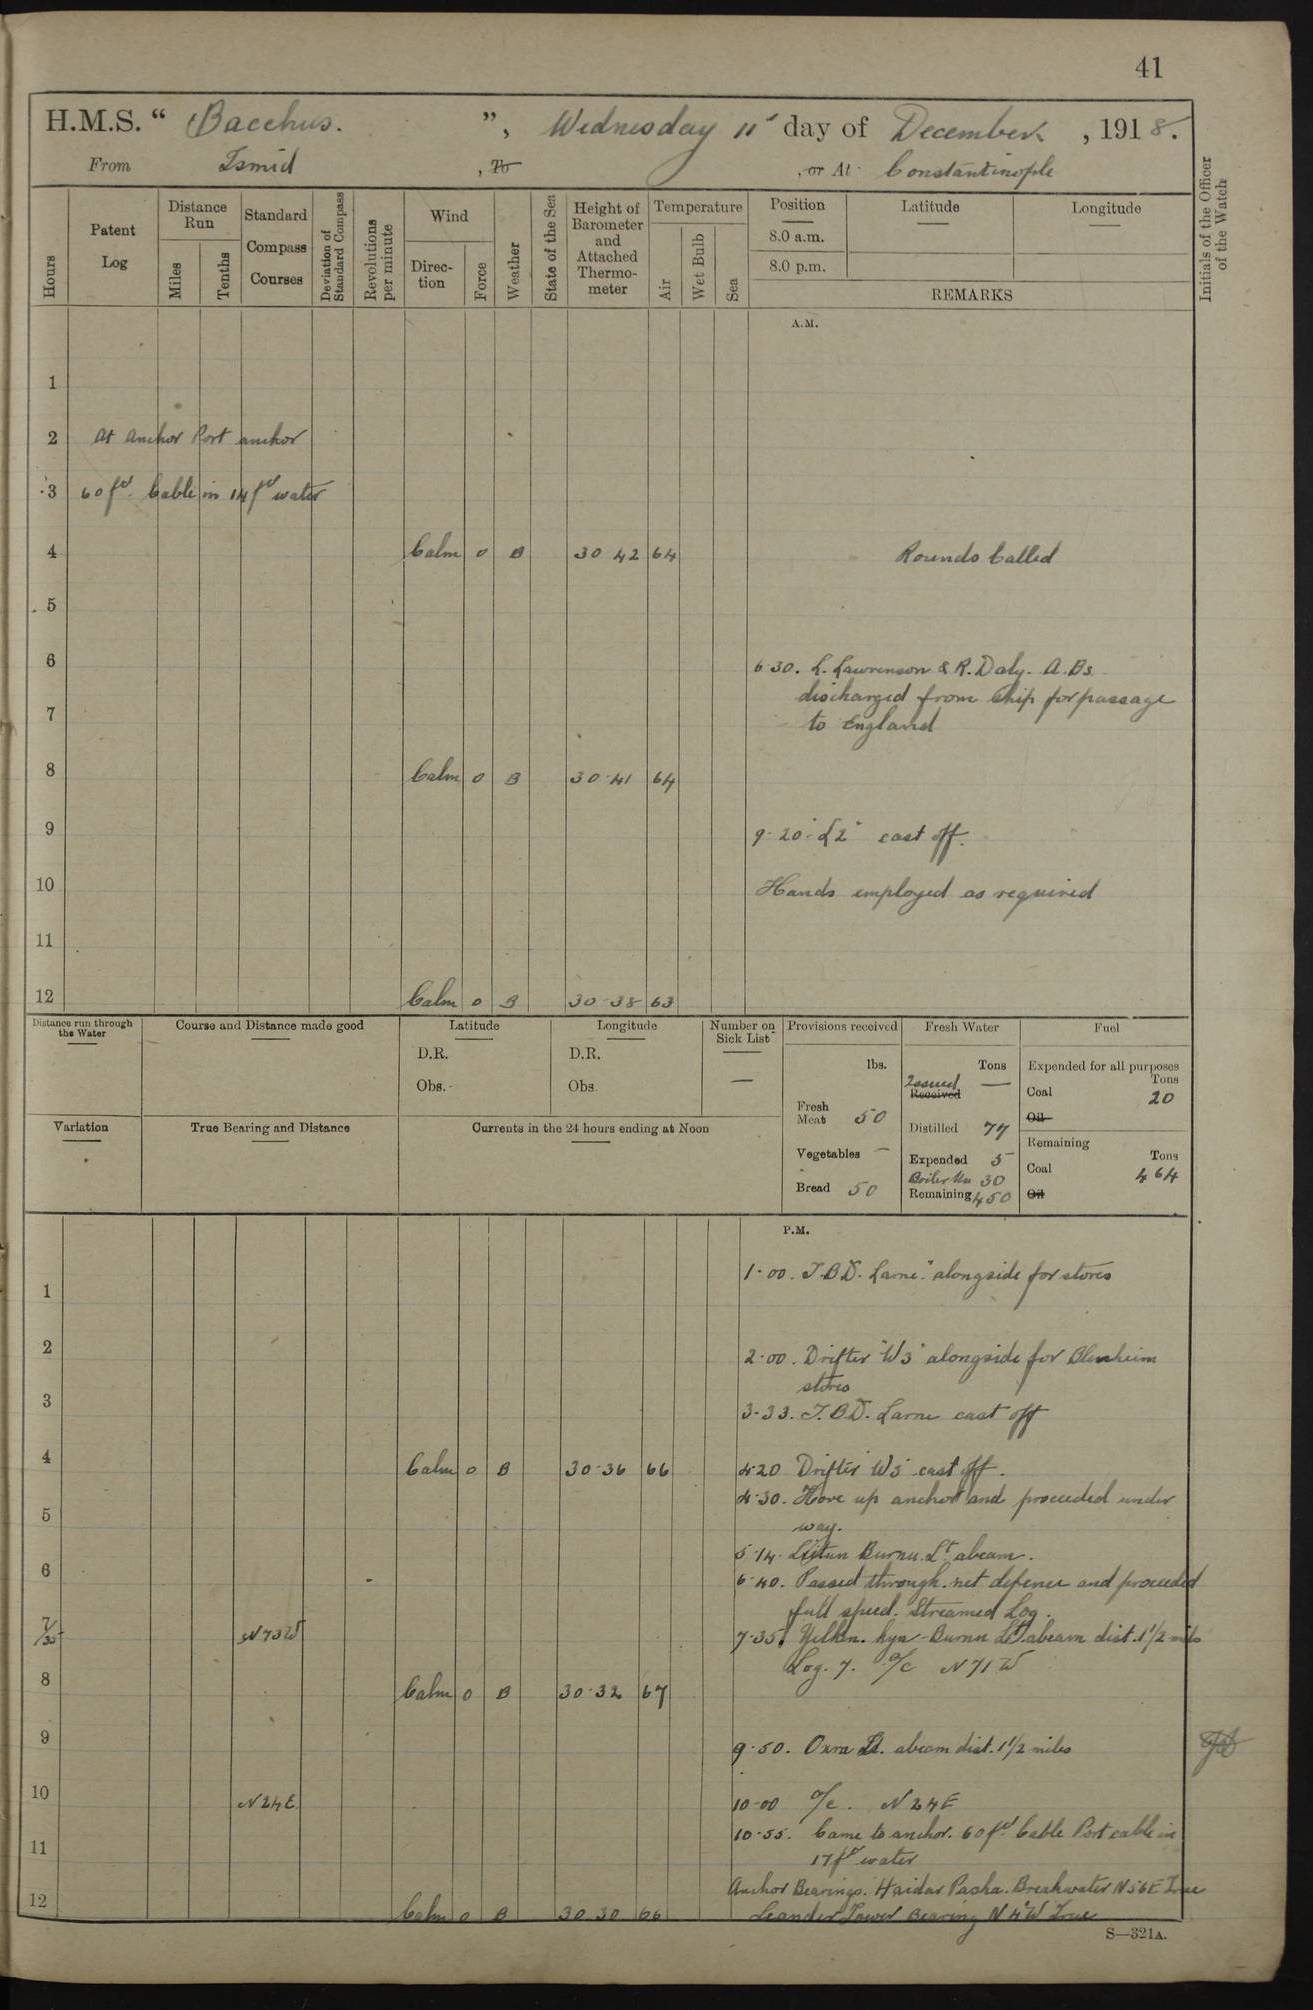 41
H.M.S. “ Bacchus. ”, Wednesday 11th day of December, 1918.
From Ismid , To , or At Constantinople
Hours
Patent Log
Distance Run
Miles
Tenths
Standard Compass Courses
Deviation of Standard Compass
Revolutions per minute
Wind
Direction
Force
Weather
State of the Sea
Height of Barometer and Attached Thermometer
Temperature
Air
Wet Bulb
Sea
Position
8.0 a.m.
8.0 p.m.
Latitude
Longitude
REMARKS
Initials of the Officer of the Watch
A.M.
1
2 At Anchor Port anchor
3 60 fms Cable in 14 fms water
4 Calm 0 B 30.42 64 Rounds Called
5
6 6.30. L. Lawrenson & R. Daly. A.Bs
discharged from Ship for passage
7 to England
8 Calm 0 B 30.41 64
9 9.20. "L2" cast off.
10 Hands employed as required
11
12 Calm 0 B 30.38 63
Distance run through the Water
Course and Distance made good
Latitude
D.R.
Obs.
Longitude
D.R.
Obs.
Number on Sick List
—
Provisions received
lbs.
Fresh Meat 50
Vegetables —
Bread 50
Fresh Water
Tons
Issued —
Received
Distilled 77
Expended 5
Boiler Use 30
Remaining 450
Fuel
Expended for all purposes
Tons
Coal 20
Oil
Remaining
Tons
Coal 464
Oil
Variation
True Bearing and Distance
Currents in the 24 hours ending at Noon
P.M.
1 1.00. T.B.D. "Larne" alongside for stores
2 2.00. Drifter "W3" alongside for Blenheim
stores
3 3.33. T.B.D. Larne cast off
4 Calm 0 B 30.36 66 4.20 Drifter W3 cast off.
4.30. Hove up anchor and proceeded under
5 way.
5.14. Burnu Lt abeam.
6 6.40. Passed through net defence and proceeded
full speed. Streamed Log.
7/35 N73W 7.35. Yelken. kya-Burnu Lt abeam dist. 1 1/2 mls
Log. 7. a/c N71W
8 Calm 0 B 30.32 67
9 9.50. Oxra Lt. abeam dist. 1 1/2 miles
10 N24E 10.00 a/c. N24E
10.55. Came to anchor. 60 fms Cable Port cable in
11 17 fms water
Anchor Bearings. Haidar Pasha Breakwater N56E True
12 Calm 0 B 30.30 66 Leander Tower Bearing N4°W True
S—321A.